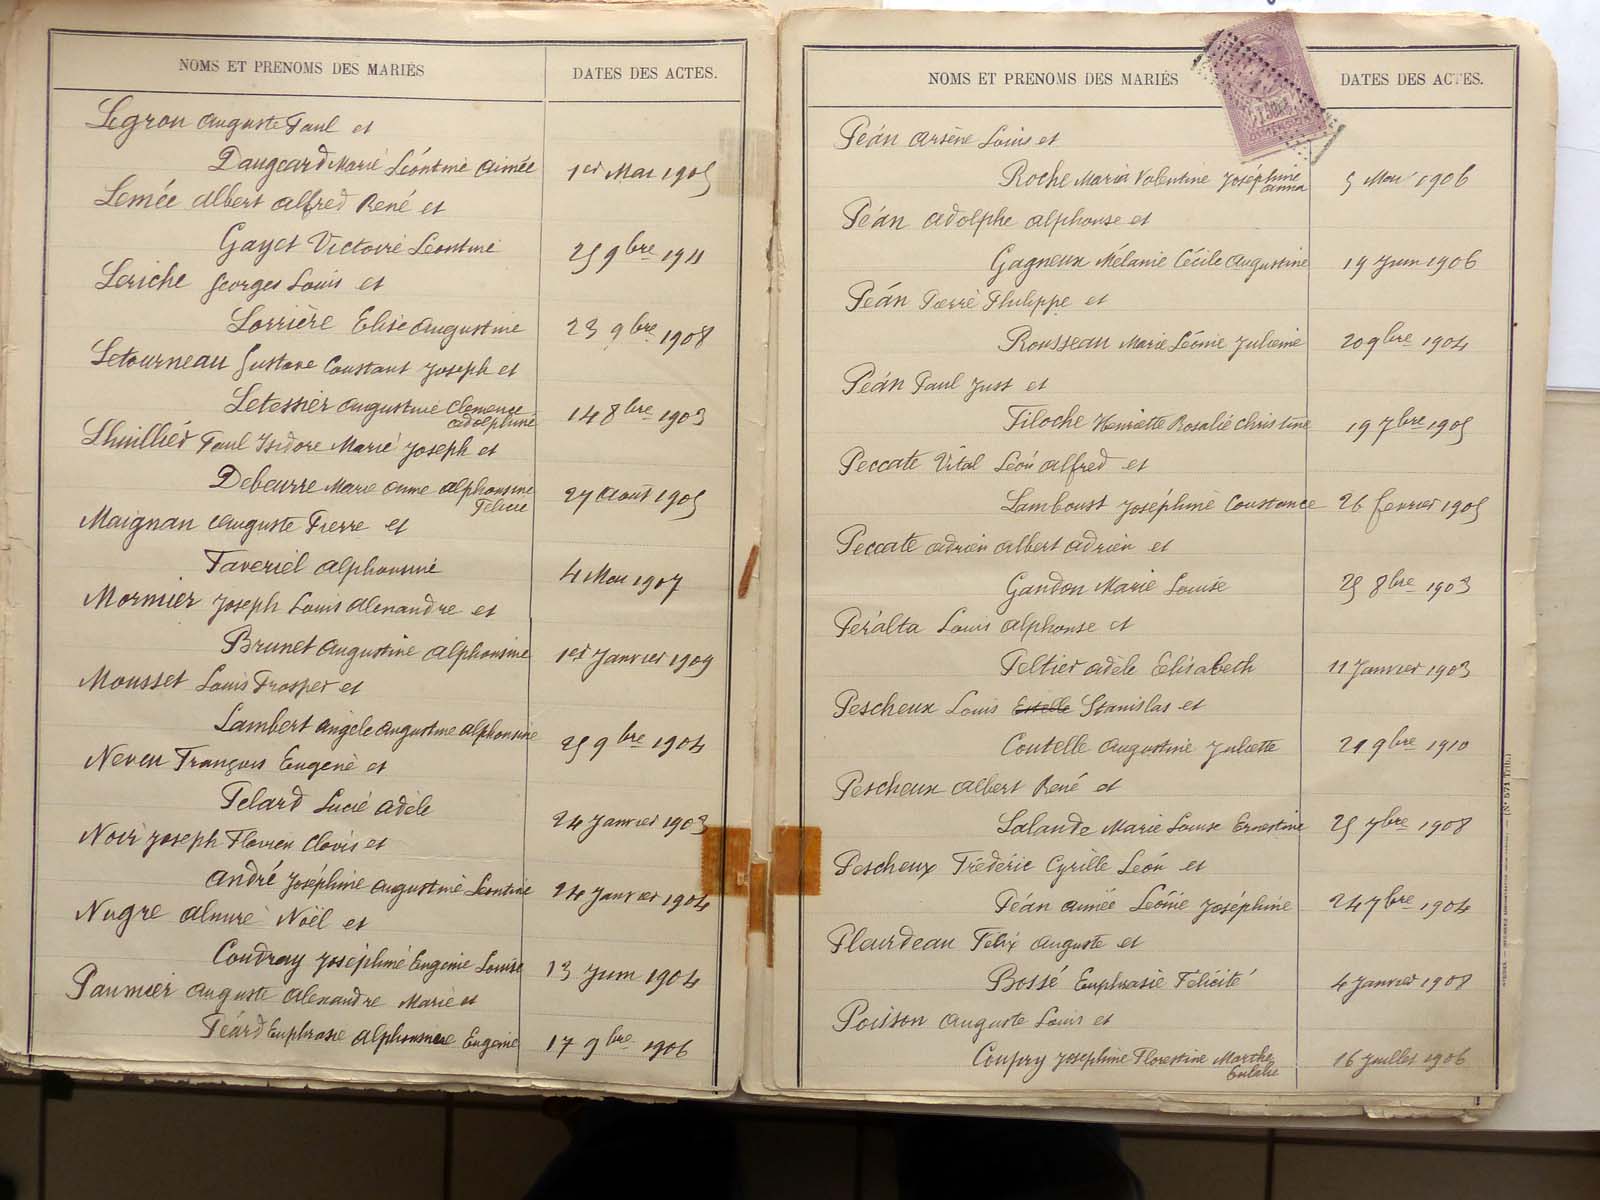 NOMS ET PRENOMS DES MARIÉS
DATES DES ACTES.
Legron Auguste Paul et
Daugeard Marie Léontine Aimée 1er Mai 1905
Lemée Albert Alfred René et
Gayet Victoire Léontine 25 9bre 1911
Leriche Georges Louis et
Lorrière Elise Augustine 23 9bre 1908
Letourneau Gustave Constant Joseph et
Letessier Augustine Clemence
Adolphine 14 8bre 1903
Lhuillier Paul Isidore Marie Joseph et
Debeurre Marie Anne Alphonsine
Félicie 27 Août 1905
Maignan Auguste Pierre et
Taveriel Alphonsine 4 Mai 1907
Mormier Joseph Louis Alexandre et
Brunet Augustine Alphonsine 1er Janvier 1909
Mousset Louis Prosper et
Lambert Angèle Augustine Alphonsine 25 9bre 1904
Neveu François Eugène et
Pelard Lucie Adèle 24 Janvier 1903
Noir Joseph Flavien Clovis et
André Joséphine Augustine Léontine 24 Janvier 1904
Nugre Noël et
Coudray Joséphine Eugénie Louise 13 Juin 1904
Paumier Auguste Alexandre Marie et
Péard Euphrasie Alphonsine Eugénie 17 9bre 1906
NOMS ET PRENOMS DES MARIÉS
DATES DES ACTES.
Péan Arsène Louis et
Roche Maria Valentine Joséphine
Anna 5 Mai 1906
Péan Adolphe Alphonse et
Gagneux Mélanie Cécile Augustine 19 Juin 1906
Péan Pierre Philippe et
Rousseau Marie Léonie Julienne 20 9bre 1904
Péan Paul Just et
Filoche Henriette Rosalie Christine 19 7bre 1905
Peccate Vital Léon Alfred et
Lamboust Joséphine Constance 26 février 1905
Peccate Adrien Albert Adrien et
Gandon Marie Louise 25 8bre 1903
Péralta Louis Alphonse et
Peltier Adèle Elisabeth 11 Janvier 1903
Pescheux Louis Estelle Stanislas et
Coutelle Augustine Juliette 29 9bre 1910
Pescheux Albert René et
Lalande Marie Louise Ernestine 25 7bre 1908
Pescheux Fréderic Cyrille Léon et
Péan Aimée Léonie Joséphine 24 7bre 1904
Pleurdeau Félix Auguste et
Bossé Euphrasie Félicité 4 Janvier 1908
Poisson Auguste Louis et
Coupry Joséphine Florestine Marthe
Eulalie 16 Juillet 1906